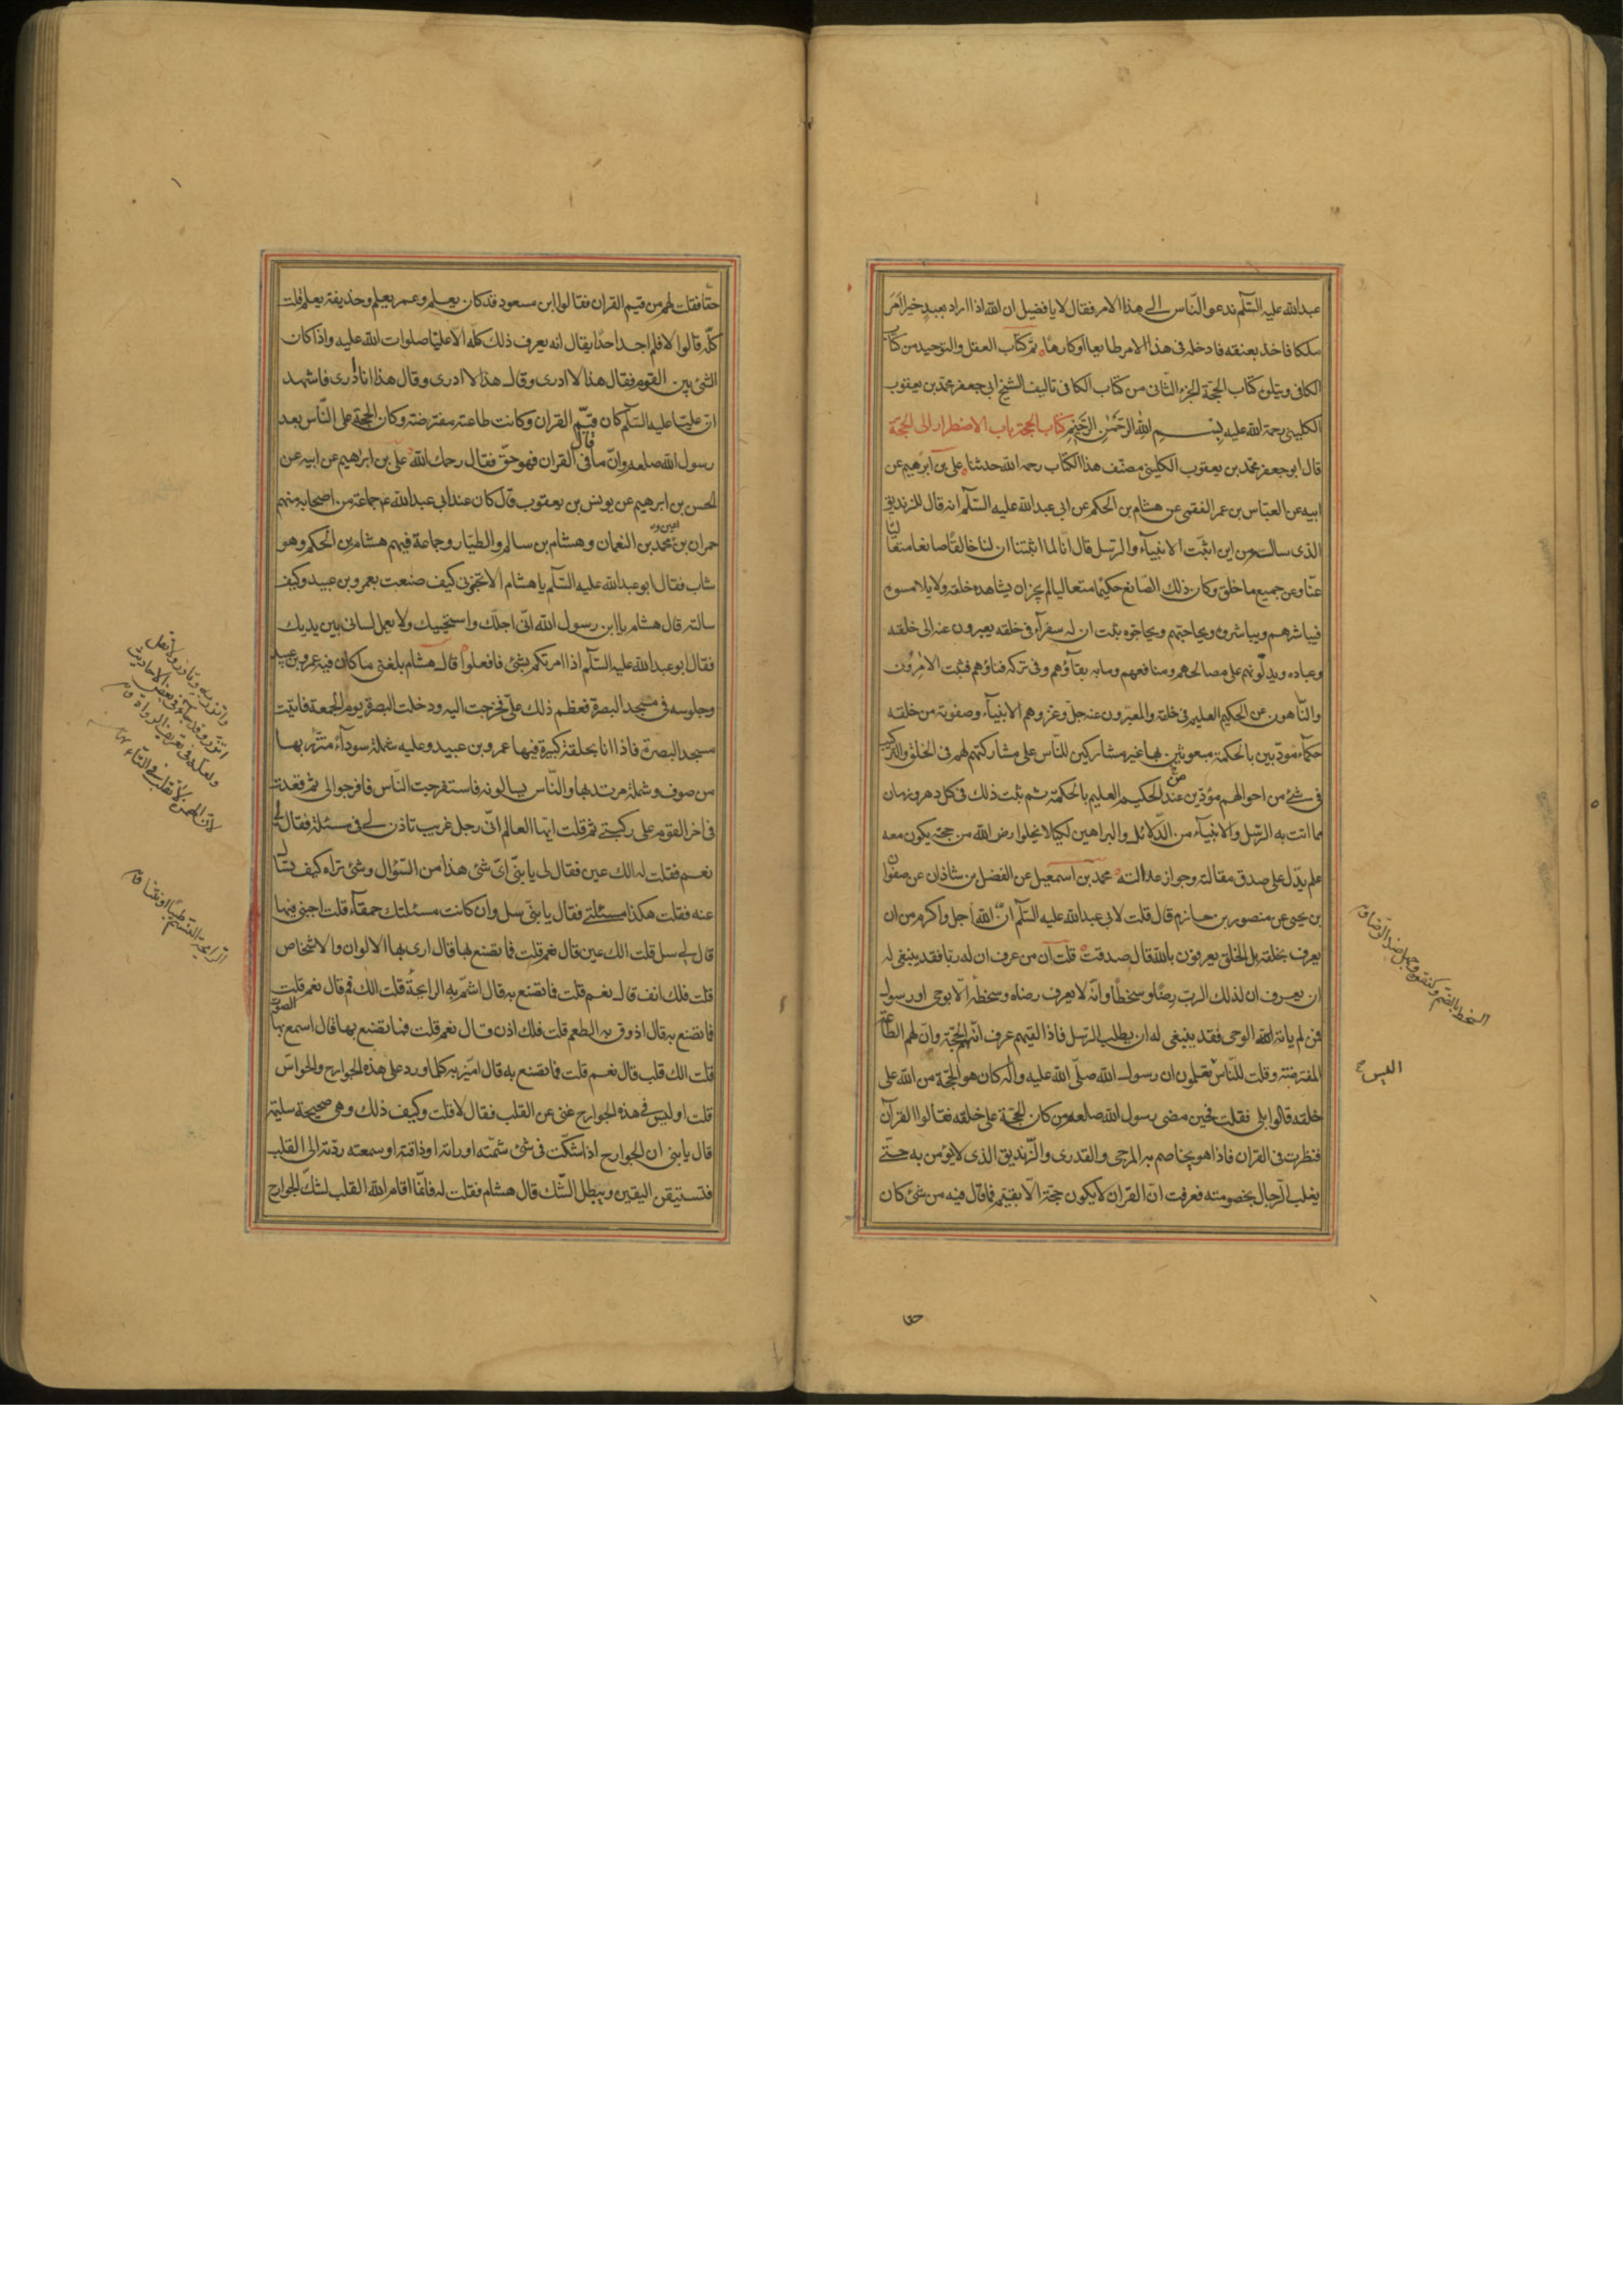 عبدالله عليه السّلم ندعو النّاس الى هذا الامر فقال لا يا فضيل ان الله اذا اراد بعبد خيرا امر
ملكا فاخذ بعنقه فادخله فى هذا الامر طايعا او كارهًا تم كتاب العقل والتوحيد من كتاب
الكافى ويتلوه كتاب الحجّة الجزء الثانى من كتاب الكافى تاليف الشيخ ابى جعفر محمّد بن يعقوب
الكلينى رحمة الله عليه بسم الله الرحمن الرحيم كتاب الحجة باب الاضطرار الى الحجّة
قال ابو جعفر محمّد بن يعقوب الكلينى مصنّف هذا الكتاب رحمه الله حدثنا على بن ابرهيم عن
ابيه عن العبّاس بن عمر الفقيمى عن هشام بن الحكم عن ابى عبدالله عليه السّلم انه قال للزنديق
الذى ساله من اين اثبّت الانبيآء والرسل قال انّا لما اثبتنا ان لنا خالقًا صانعا متعاليًا
عنّا وعن جميع ما خلق وكان ذلك الصّانع حكيمًا متعاليا لم يجز ان يشاهده خلقه ولا يلامسوه
فيباشرهم ويباشروه ويحاجّهم ويحاجّوه ثبت ان له سفرآء فى خلقه يعبرون عنه الى خلقه
وعباده ويدلّونهم على مصالحهم ومنافعهم وما به بقآؤهم وفى تركه فناؤهم فثبت الامرون
والنّاهون عن الحكيم العليم فى خلقه والمعبّرون عنه جلّ وعز وهم الانبيآء وصفوته من خلقه
حكمآء مؤدّبين بالحكمة مبعوثين بها غير مشاركين للنّاس على مشاركتهم لهم فى الخلق والتركيب
فى شئ من احوالهم مؤيّدين من عند الحكيم العليم بالحكمة ثم ثبت ذلك فى كل دهر وزمان
مما اتت به الرّسل والانبيآء من الدّلائل والبراهين لكيلا تخلوا ارض الله من حجّة يكون معه
علم يدّل على صدق مقالته وجواز عدالته محمّد بن اسمعيل عن الفضل بن شاذان عن صفوان
بن يحيى عن منصور بن حازم قال قلت لابى عبدالله عليه السّلم انّ الله اجل واكرم من ان
يعرف بخلقه بل الخلق يعرفون بالله قال صدقت قلت ان من عرف ان له ربّا فقد ينبغى له
ان يعرف ان لذلك الربّ رضًا وسخطًا وانّه لا يعرف رضاه وسخطه الّا بوحى او رسول
فمن لم ياته الله الوحى فقد ينبغى له ان يطلب الرّسل فاذا لقيهم عرف انّهم الحجّة وان لهم الطّاعة
المفترضة وقلت للنّاس تعلمون ان رسول الله صلّى الله عليه واله كان هو الحجّة من الله على
خلقه قالوا بلى فقلت فحين مضى رسول الله صلعم من كان الحجّة على خلقه فقالوا القرآن
فنظرت فى القران فاذا هو يخاصم به المرجى والقدرى والزّنديق الذى لا يؤمن به حتّى
يغلب الرّجال بخصومته فعرفت انّ القران لا يكون حجّة الّا بقيّم فما قال فيه من شئ كان
السخط بالضم وكعنق وجبل ضد الرّضا ق
اليس ح
حقا
حقّا فقلت لهم من قيم القران فقالوا ابن مسعود قد كان يعلم وعمر يعلم وحذيفة يعلم قلت
كلّه قالوا لا فلم اجد احدًا يقال انه يعرف ذلك كلّه الّا عليّا صلوات الله عليه واذا كان
الشئ بين القوم فقال هذا لا ادرى وقال هذا لا ادرى وقال هذا انا ادرى فاشهد
ان عليّا عليه السّلم كان قيّم القران وكانت طاعته مفترضة وكان الحجّة على النّاس بعد
رسول الله صلعم وانّ ما قال فى القران فهو حقّ فقال رحمك الله على بن ابراهيم عن ابيه عن
الحسن بن ابرهيم عن يونس بن يعقوب قال كان عند ابى عبدالله ع جماعة من اصحابه منهم
حمران بن اعين و محمد بن النعمان وهشام بن سالم والطيّار وجماعة فيهم هشام بن الحكم وهو
شاب فقال ابو عبدالله عليه السّلم يا هشام الا تخبرنى كيف صنعت بعمرو بن عبيد وكيف
سالته قال هشام يا ابن رسول الله انّى اجلّك واستحييك ولا يعمل لسانى بين يديك
فقال ابو عبدالله عليه السّلم اذا امرتكم بشئ فافعلوا قال هشام بلغنى ما كان فيه عمرو بن عبيد
وجلوسه فى مسجد البصرة فعظم ذلك علىّ فخرجت اليه ودخلت البصرة يوم الجمعة فاتيت
مسجد البصرة فاذا انا بحلقة كبيرة فيها عمرو بن عبيد وعليه شملة سودآء متّزر بها
من صوف وشملة مرتد بها والنّاس يسالونه فاستفرجت النّاس فافرجوا لى ثم قعدت
فى اخر القوم على ركبتى ثم قلت ايّها العالم انّى رجل غريب تاذن لى فى مسئلة فقال لى
نعم فقلت له الك عين فقال لى يا بنّى اىّ شئ هذا من السّؤال وشئ تراه كيف تسال
عنه فقلت هكذا مسئلتى فقال يا بنّى سل وان كانت مسئلتك حمقآء قلت اجبنى فيها
قال لى سل قلت الك عين قال نعم قلت فما تصنع بها قال ارى بها الالوان والاشخاص
قلت فلك انف قال نعم قلت فما تصنع به قال اشمّ به الرايحة قلت الك فم قال نعم قلت
فما تصنع به قال اذوق به الطعم قلت فلك اذن قال نعم قلت فما تصنع بها قال اسمع بها الصوت
قلت الك قلب قال نعم قلت فما تصنع به قال اميّز به كلما ورد على هذه الجوارح والحواسّ
قلت اوليس فى هذه الجوارح غنى عن القلب فقال لا قلت وكيف ذلك وهى صحيحة سليمة
قال يا بنى ان الجوارح اذا شكّت فى شئ شمّته او راته او ذاقته او سمعته ردّته الى القلب
فتستيقن اليقين ويبطل الشّك قال هشام فقلت له فانّما اقام الله القلب لشّك الجوارح
واتزر به وتازر ولا تقل
اتّزر وقد جآء فى بعض الاحاديث
ولعلّه من تحريف الرواة ق